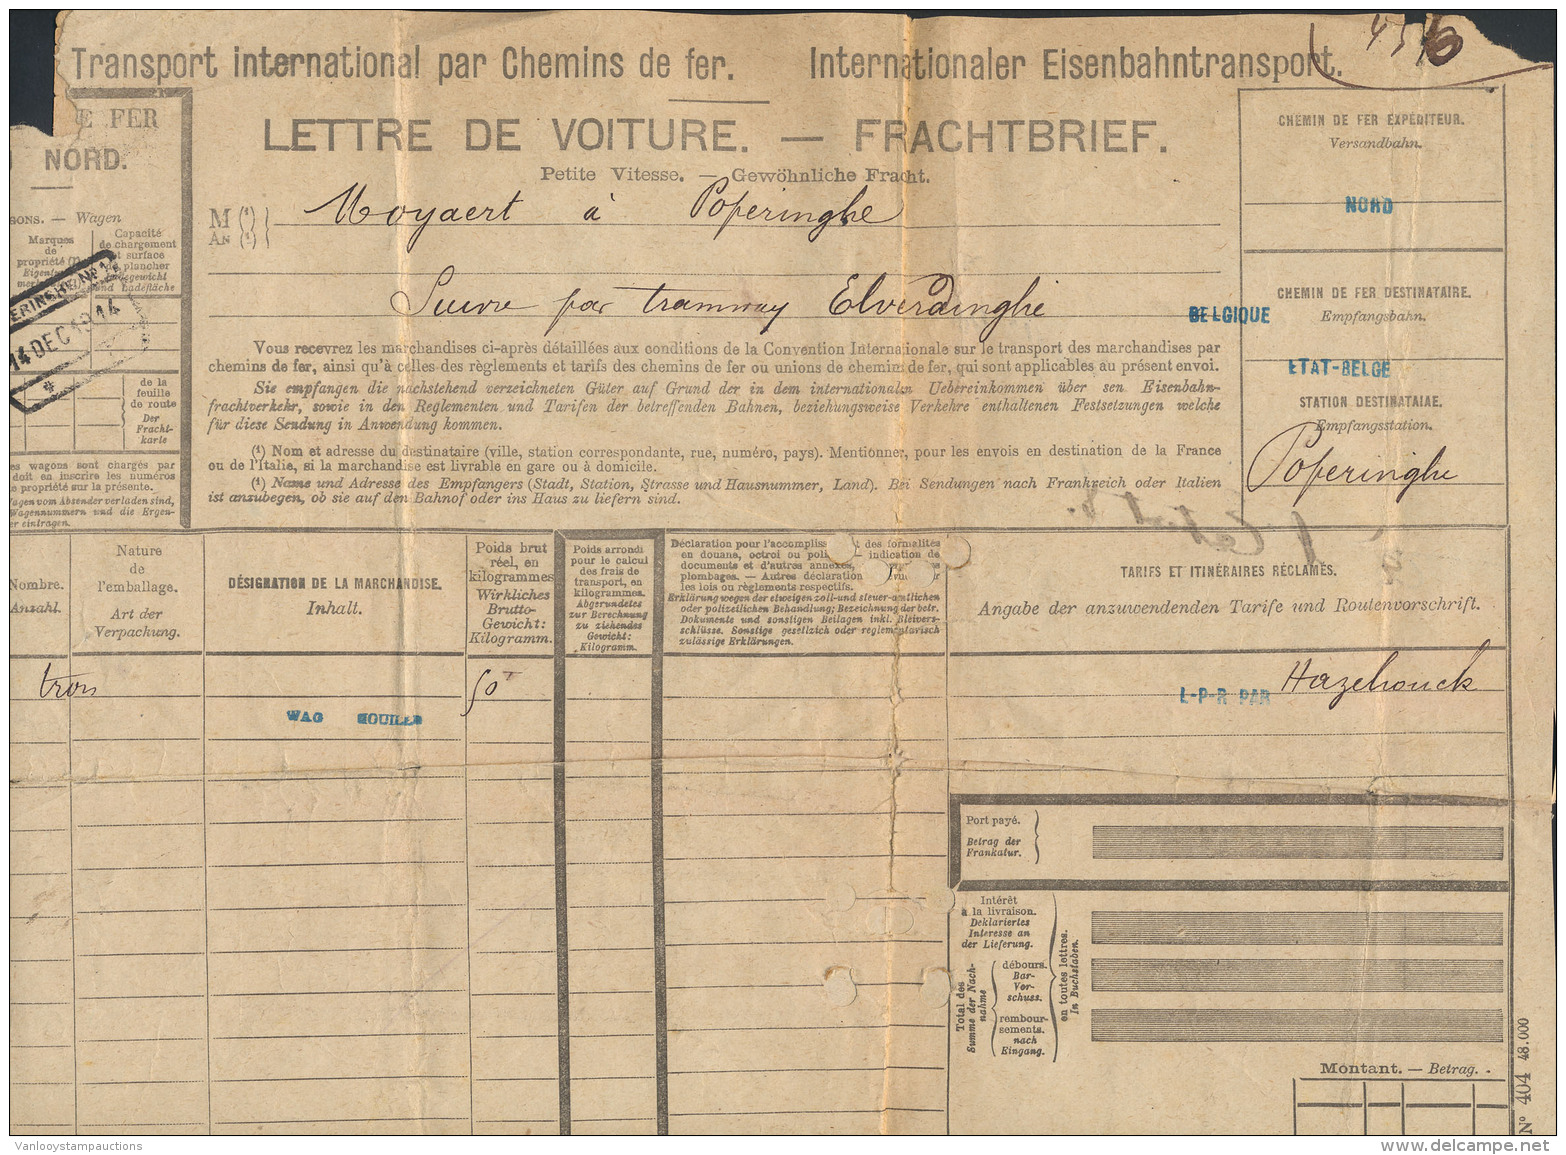 4516
Transport international par Chemins de fer. Internationaler Eisenbahntransport.
E FER
NORD.
LETTRE DE VOITURE. — FRACHTBRIEF.
Petite Vitesse. — Gewöhnliche Fracht.
SONS. — Wagen
Marques
de
propriété (1)
Capacité
de chargement
et surface
de plancher
Ladegewicht
und Ladefläche
ERINGHE No 1
14 DEC 1914
de la
feuille
de route
Der
Fracht-
karte
es wagons sont chargés par
doit en inscrire les numéros
e propriété sur la présente.
agen vom Absender verladen sind,
Wagennummern und die Ergen-
er eintragen.
M (1)
AN (1)
Moyaert à Poperinghe
Suivre par tramway Elverdinghe
Vous recevrez les marchandises ci-après détaillées aux conditions de la Convention Internationale sur le transport des marchandises par
chemins de fer, ainsi qu'à celles des règlements et tarifs des chemins de fer ou unions de chemins de fer, qui sont applicables au présent envoi.
Sie empfangen die nachstehend verzeichneten Güter auf Grund der in dem internationalen Uebereinkommen über sen Eisenbahn-
frachtverkehr, sowie in den Reglementen und Tarifen der betreffenden Bahnen, beziehungsweise Verkehre enthaltenen Festsetzungen welche
für diese Sendung in Anwendung kommen.
(1) Nom et adresse du destinataire (ville, station correspondante, rue, numéro, pays). Mentionner, pour les envois en destination de la France
ou de l'Italie, si la marchandise est livrable en gare ou à domicile.
(1) Name und Adresse des Empfangers (Stadt, Station, Strasse und Hausnummer, Land). Bei Sendungen nach Frankreich oder Italien
ist anzubegen, ob sie auf den Bahnof oder ins Haus zu liefern sind.
CHEMIN DE FER EXPÉDITEUR.
Versandbahn.
NORD
CHEMIN DE FER DESTINATAIRE.
Empfangsbahn.
BELGIQUE
ETAT-BELGE
STATION DESTINATAIAE.
Empfangsstation.
Poperinghe
Nombre.
Anzahl.
Nature
de
l'emballage.
Art der
Verpackung.
DÉSIGNATION DE LA MARCHANDISE.
Inhalt.
Poids brut
réel, en
kilogrammes
Wirkliches
Brutto-
Gewicht:
Kilogramm.
Poids arrondi
pour le calcul
des frais de
transport, en
kilogrammes.
Abgerundetes
zur Berechnung
zu ziehendes
Gewicht:
Kilogramm.
Déclaration pour l'accompliss t des formalités
en douane, octroi ou poli — indication de
documents et d'autres annexes,
plombages. — Autres déclaration
les lois ou règlements respectifs.
Erklärung wegen der etweigen zoll-und steuer-amtlichen
oder polizetlichen Behandlung; Bezeichnung der betr.
Dokumente und sonstigen Beilagen inkl. Bleivers-
schlüsse. Sonstige gesetlzich oder reglementarisch
zulässige Erklärungen.
TARIFS ET ITINÉRAIRES RÉCLAMÉS.
Angabe der anzuwendenden Tarife und Routenvorschrift.
trois
50
WAG HOUILLE
L-P-R PAR Hazebouck
Port payé.
Betrag der
Frankatur.
Intérêt
à la livraison.
Deklariertes
Interesse an
der Lieferung.
Total des
Summe der Nach-
nahme
débours.
Bar-
Vor-
schuss.
rembour-
sements.
nach
Eingang.
en toutes lettres.
In Buchstaben.
Montant. — Betrag.
No 404 48.000
Vanlooystampauctions
www.delcampe.net